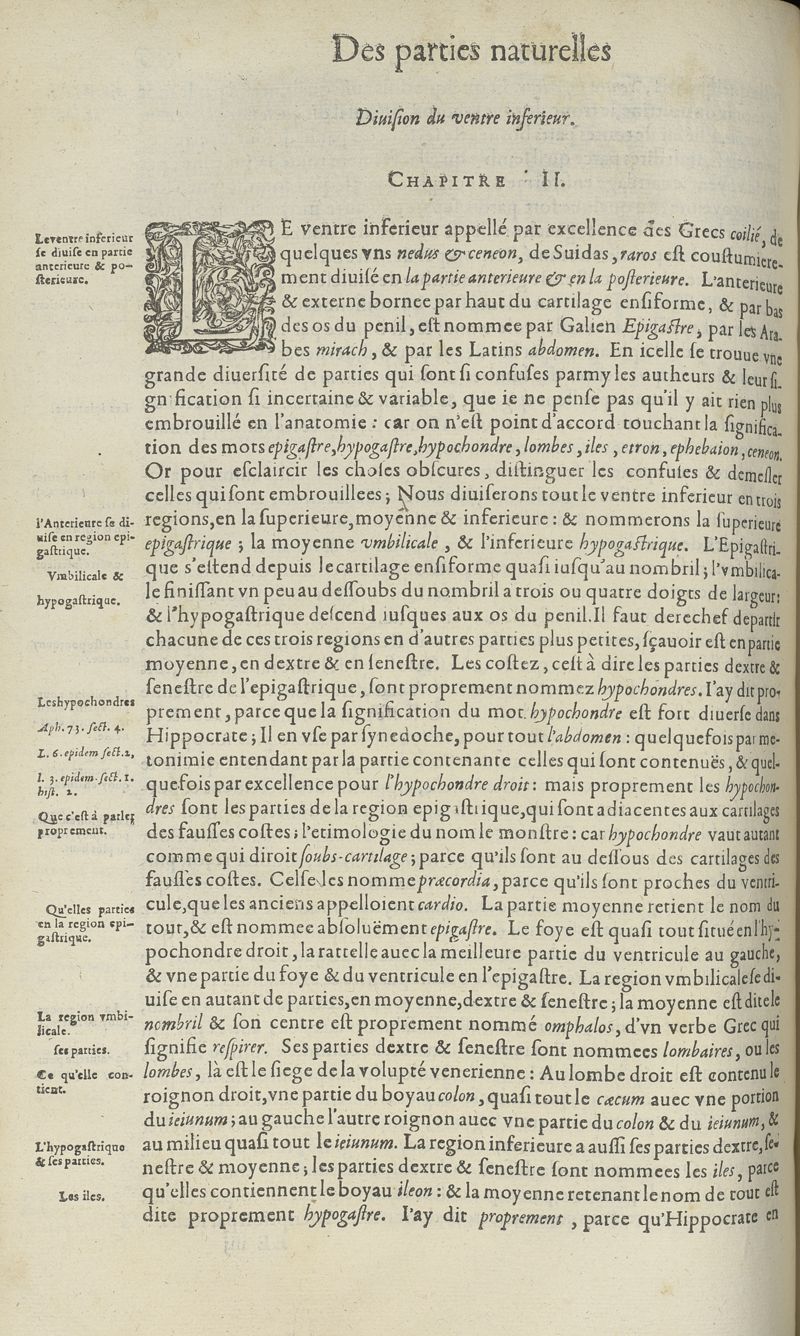 Des parties naturelles
Diuiſion du ventre inferieur.
CHAPITRE II.
Le ventre inferieur
ſe diuiſe en partie
anterieure & po-
ſterieure.
LE ventre inferieur appellé par excellence des Grecs coilié, de
quelques vns nedus & ceneon, de Suidas, raros eſt couſtumiere-
ment diuiſé en la partie anterieure & en la poſterieure. L'anterieure
& externe bornee par haut du cartilage enſiforme, & par bas
des os du penil, eſt nommee par Galien Epigaſtre, par les Ara-
bes mirach, & par les Latins abdomen. En icelle ſe trouue vne
grande diuerſité de parties qui ſont ſi confuſes parmy les autheurs & leur ſi-
gnification ſi incertaine & variable, que ie ne penſe pas qu'il y ait rien plus
embrouillé en l'anatomie : car on n'eſt point d'accord touchant la ſignifica-
tion des mots epigaſtre, hypogaſtre, hypochondre, lombes, iles, etron, ephebaion, ceneon.
Or pour eſclaircir les choſes obſcures, diſtinguer les confuſes & demeſler
celles qui ſont embrouillees; Nous diuiſerons tout le ventre inferieur en trois
l'Anterieure ſe di-
uiſe en region epi-
gaſtrique.
Vmbilicale &
hypogaſtrique.
regions, en la ſuperieure, moyenne & inferieure : & nommerons la ſuperieure
epigaſtrique ; la moyenne vmbilicale , & l'inferieure hypogaſtrique. L'Epigaſtri-
que s'eſtend depuis le cartilage enſiforme quaſi iuſqu'au nombril ; l'vmbilica-
le finiſſant vn peu au deſſoubs du nombril a trois ou quatre doigts de largeur:
& l'hypogaſtrique deſcend iuſques aux os du penil. Il faut derechef departir
chacune de ces trois regions en d'autres parties plus petites, ſçauoir eſt en partie
moyenne, en dextre & en ſeneſtre. Les coſtez, ceſt à dire les parties dextre &
Les hypochondres
Aph. 73. ſect. 4.
L. 6. epidem ſect. 2,
l. 3. epidem. ſect. 1.
hiſt. 2.
Que c'eſt à parler
proprement.
ſeneſtre de l'epigaſtrique, ſont proprement nommez hypochondres. I'ay dit pro-
prement, parce que la ſignification du mot. hypochondre eſt fort diuerſe dans
Hippocrate ; Il en vſe par ſynedoche, pour tout l'abdomen : quelquefois par me-
tonimie entendant par la partie contenante celles qui ſont contenuës, & quel-
quefois par excellence pour l'hypochondre droit : mais proprement les hypochon-
dres ſont les parties de la region epigaſtrique, qui ſont adiacentes aux cartilages
des fauſſes coſtes ; l'etimologie du nom le monſtre : car hypochondre vaut autant
comme qui diroit ſoubs-cartilage ; parce qu'ils ſont au deſſous des cartilages des
fauſſes coſtes. Celſe les nomme præcordia, parce qu'ils ſont proches du ventri-
Qu'elles parties
en la region epi-
gaſtrique.
cule, que les anciens appelloient cardio. La partie moyenne retient le nom du
tout, & eſt nommee abſoluëment epigaſtre. Le foye eſt quaſi tout ſitué en l'hy-
pochondre droit, la rattelle auec la meilleure partie du ventricule au gauche,
& vne partie du foye & du ventricule en l'epigaſtre. La region vmbilicale ſe di-
uiſe en autant de parties, en moyenne, dextre & ſeneſtre ; la moyenne eſt dite le
La region vmbi-
licale.
ſes parties.
Ce qu'elle con-
tient.
nombril & ſon centre eſt proprement nommé omphalos, d'vn verbe Grec qui
ſignifie reſpirer. Ses parties dextre & ſeneſtre ſont nommees lombaires, ou les
lombes, là eſt le ſiege de la volupté venerienne : Au lombe droit eſt contenu le
roignon droit, vne partie du boyau colon, quaſi tout le cæcum auec vne portion
du ieiunum ; au gauche l'autre roignon auec vne partie du colon & du ieiunum, &
L'hypogaſtrique
& ſes parties.
Les iles.
au milieu quaſi tout le ieiunum. La region inferieure a auſſi ſes parties dextre, ſe-
neſtre & moyenne ; les parties dextre & ſeneſtre ſont nommees les iles, parce
qu'elles contiennent le boyau ileon : & la moyenne retenant le nom de tout eſt
dite proprement hypogaſtre. I'ay dit proprement , parce qu'Hippocrate en